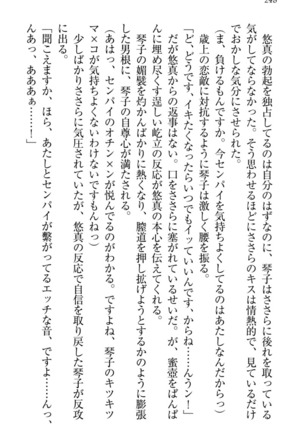 248
悠真の勃起を独占してるのは自分のはずなのに、琴子はささらに後れを取っている
気がしてならなかった。そう思わせるほどにささらのキスは情熱的で、見ているだけ
でおかしな気分にさせられた。
(ま、負けるもんですか。今センパイを気持ちよくしてるのはあたしなんだからっ)
歳上の恋敵に対抗するように琴子は激しく腰を振る。
「ど、どうです、イキたくなったらいつでもイッていいんです、からね……んうン!」
だが悠真からの返事はない。口をささらに塞がれているせいだ。が、蜜壺をぱんぱ
んに埋め尽くす逞しい屹立の反応が悠真の本心を伝えてくれる。
琴子の媚襞を灼かんばかりに熱くなり、膣道を押し拡げようとするかに膨張
した男根に、琴子の自尊心が満たされる。
(あはっ、センパイのオチン×ンが悦んでるのがわかる。ですよね、琴子のキツキツ
マ×コが気持ちよくないわけないですもんねっ)
少しばかりささらに気圧されていたが、悠真の反応で自信を取り戻した琴子が反攻
に出る。
「聞こえますか、ほら、あたしとセンパイが繋がってるエッチな音、ですよ……んっ、
んっ、あああぁ……!」